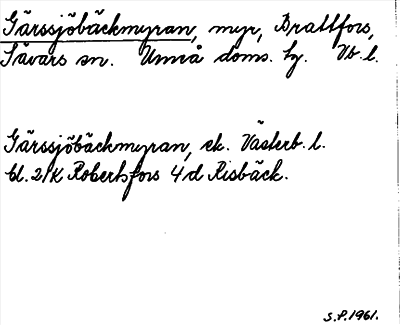 Gärssjöbäckmyran, myr, Brattfors,
Sävars sn. Umeå doms. hg. Vb. l.
Gärssjöbäckmyran, ek. Västerb. l.
bl. 21K Robertsfors 4d Risbäck.
S.P. 1961.